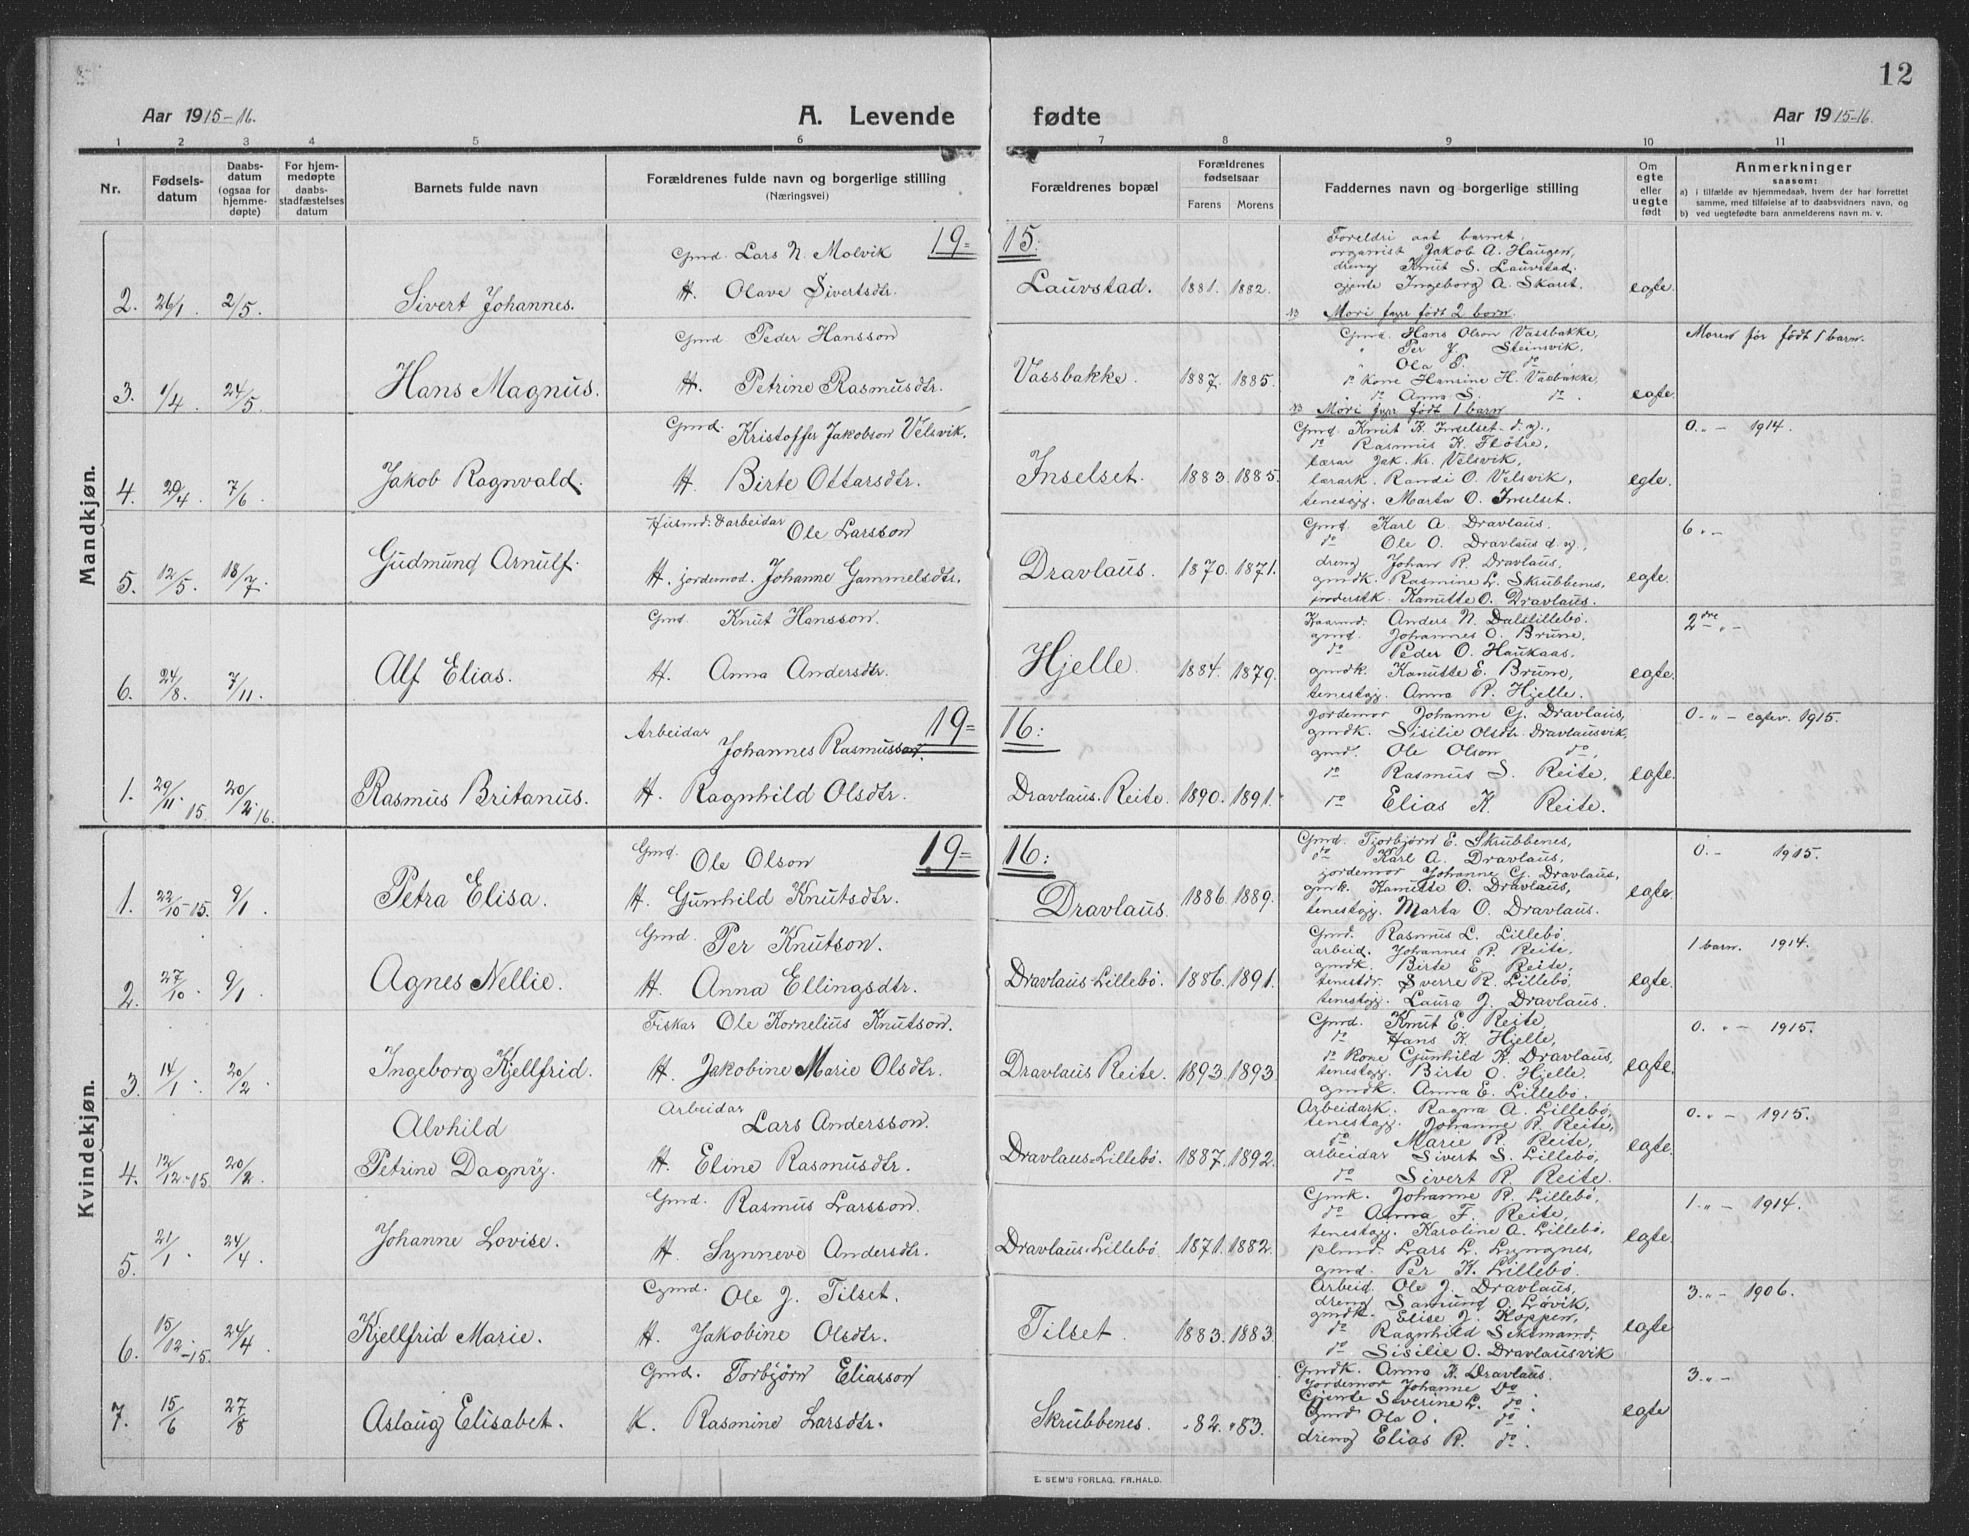 12
Aar 1915-16.
A. Levende
fødte
Aar 1915-16.
1 2 3 4 5 6 7 8 9 10 11
Nr.
Fødsels-
datum
Daabs-
datum
(ogsaa for
hjemme-
døpte)
For hjem-
medøpte
daabs-
stadfæstelses
datum
Barnets fulde navn
Forældrenes fulde navn og borgerlige stilling
(Næringsvei)
Forældrenes bopæl
Forældrenes
fødselsaar
Farens Morens
Faddernes navn og borgerlige stilling
Om
egte
eller
uegte
født
Anmerkninger
saasom:
a) i tilfælde av hjemmedaab, hvem der har forrettet
samme, med tilføielse af to daabsvidners navn, og
b) ved uegtefødte barn anmelderens navn m. v.
Mandkjøn.
19=15:
2. 26/1. 2/5. Sivert Johannes.
Gmd. Lars N. Molvik
H. Olave Sivertsdtr.
Lauvstad. 1881. 1882.
Foreldri aat barnet,
organist Jakob A. Haugen,
dreng Knut S. Lauvstad.
gjente Ingeborg A. Skaret.
egte.
NB Mori fyrr født 2 born.
3. 1/4. 24/5. Hans Magnus.
Gmd Peder Hansson
H. Petrine Rasmusdtr.
Vassbakke. 1887. 1885.
Gmd. Hans Olson Vassbakke,
" Per J. Steinsvik,
" Ola P. do,
do Kone Hansine H. Vasbakke
" do Anna S. do.
egte.
Moren før født 1 barn.
NB Mori fyrr født 1 barn
4. 20/4. 7/6. Jakob Ragnvald.
Gmd. Kristoffer Jakobson Velsvik.
H. Birte Ottarsdtr.
Inselset. 1883. 1885.
Gmd. Knut K. Inselset d. y.,
do Rasmus K. Fløtre,
lærar Jak. Kr. Velsvik,
lærark. Randi O. Velsvik,
tenestgj. Marta O. Inselset.
egte.
0. " - 1914.
5. 12/5. 18/7. Gudmund Arnulf.
Husmd. & arbeidar Ole Larsson
H. jordemod. Johanne Gammelsdtr.
Dravlaus. 1870. 1871.
Gmd. Karl A. Dravlaus.
do Ole O. Dravlaus d. y.,
dreng Johan R. Dravlaus,
gmdk. Rasmine L. Skrubbenes,
Kanutte O. Dravlaus.
egte.
6. " -
6. 24/8. 7/11. Alf Elias.
Gmd. Knut Hansson.
H. Anna Andersdtr.
Hjelle. 1884. 1879.
Kaarmd. Anders N. Dalslillebø.
gmd. Johannes O. Brune,
do Peder O. Haukaas,
gmdk. Kanutte E. Brune,
tenestgj. Anna R. Hjelle.
egte.
2 dre " -
19=16:
1. 29/11. 15. 20/2. 16. Rasmus Britanus.
Arbeidar Johannes Rasmusson.
H. Ragnhild Olsdtr.
Dravlaus-Reite. 1890. 1891.
Jordemor Johanne G. Dravlaus,
gmdk. Sisilie Olsdtr. Dravlausvik,
gmd. Ole Olson do,
do Rasmus S. Reite,
do Elias K. Reite.
egte.
0 - " - egtev. 1915.
Kvindekjøn.
19=16:
1. 22/10-15. 9/1. Petra Elisa.
Gmd. Ole Olson
H. Gunhild Knutsdtr.
Dravlaus. 1886. 1889.
Gmd. Tjorbjørn E. Skrubbenes,
do Karl A. Dravlaus,
jordemor Johanne G. Dravlaus,
gmk. Kanutte O. Dravlaus,
tenestgj. Marta O. Dravlaus.
egte.
0. - 1915.
2. 27/10. 9/1. Agnes Nellie.
Gmd. Per Knutson.
H. Anna Ellingsdtr.
Dravlaus-Lillebø. 1886. 1891.
Gmd. Rasmus L. Lillebø,
arbeid. Johannes R. Reite,
gmdk. Birte E. Reite,
tenestdr. Sverre R. Lillebø,
tenestgj. Laura J. Dravlaus.
egte.
1 barn. 1914.
3. 14/1. 20/2. Ingeborg Kjellfrid.
Fiskar Ole Kornelius Knutson.
H. Jakobine Marie Olsdtr.
Dravlaus Reite. 1893. 1893.
Gmd. Knut E. Reite,
do Hans K. Hjelle,
do Kone Gunhild K. Dravlaus,
tenestgj. Birte O. Hjelle.
gmdk. Anna E. Lillebø.
egte.
0. " - 1915.
4. 12/12-15. 20/2. Alvhild
Petrine Dagny.
Arbeidar Lars Andersson.
H. Eline Rasmusdtr.
Dravlaus-Lillebø. 1887. 1892.
Arbeidark. Ragna A. Lillebø,
tenestgj. Johanne R. Reite,
do Marie R. Reite,
arbeidar Sivert S. Lillebø,
do Sivert R. Reite.
egte.
0. " - 1915.
5. 21/1. 24/4. Johanne Lovise.
Gmd. Rasmus Larsson.
H. Synneve Andersdtr.
Dravlaus-Lillebø. 1871. 1882.
Gmk. Johanne R. Lillebø,
do Anna F. Reite,
tenestgj. Karoline A. Lillebø,
plmd. Lars L. Lyngnes,
gmd. Per K. Lillebø.
egte.
1. " - 1914.
6. 15/12-15. 24/4. Kjellfrid Marie.
Gmd. Ole J. Tilset.
H. Jakobine Olsdtr.
Tilset. 1883. 1883.
Arbeid. Ole J. Dravlaus,
dreng Samund O. Løvik,
gmdk. Elise J. Koppen,
do Ragnhild Seksmand.
do Sisilie O. Dravlausvik
egte
3. " - 1906.
7. 15/6 27/8 Aslaug Elisabet.
Gmd. Torbjørn Eliasson
K. Rasmine Larsdtr.
Skrubbenes. "82. "83.
Gmdk. Anna K. Dravlaus.
Jordemor Johanne Do
Gjente Severine L. do.
Gmd Ola O. do.
dreng Elias R. do.
egte
3. " -
E. SEM'S FORLAG, FR.HALD.